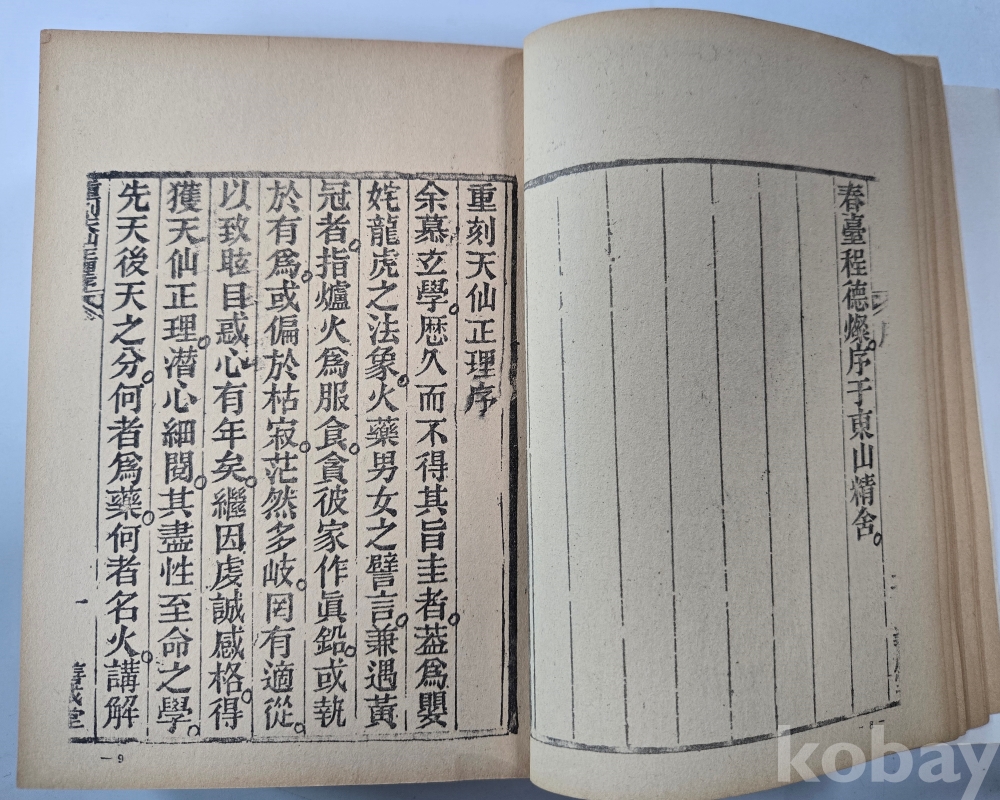 春臺程德燦。序于東山精舍。
重刻天仙正理序
余慕玄學。歷久而不得其旨圭者。葢爲嬰
姹龍虎之法象。火藥男女之譬言。兼遇黃
冠者。指爐火爲服食。貪彼家作眞鉛。或執
於有爲。或偏於枯寂。茫然多岐。罔有適從。
以致眩目惑心有年矣。繼因虔誠感格。得
獲天仙正理。潛心細閱。其盡性至命之學。
先天後天之分。何者爲藥。何者名火。講解
重刻天仙正理序
一
善成堂
一9
kobay